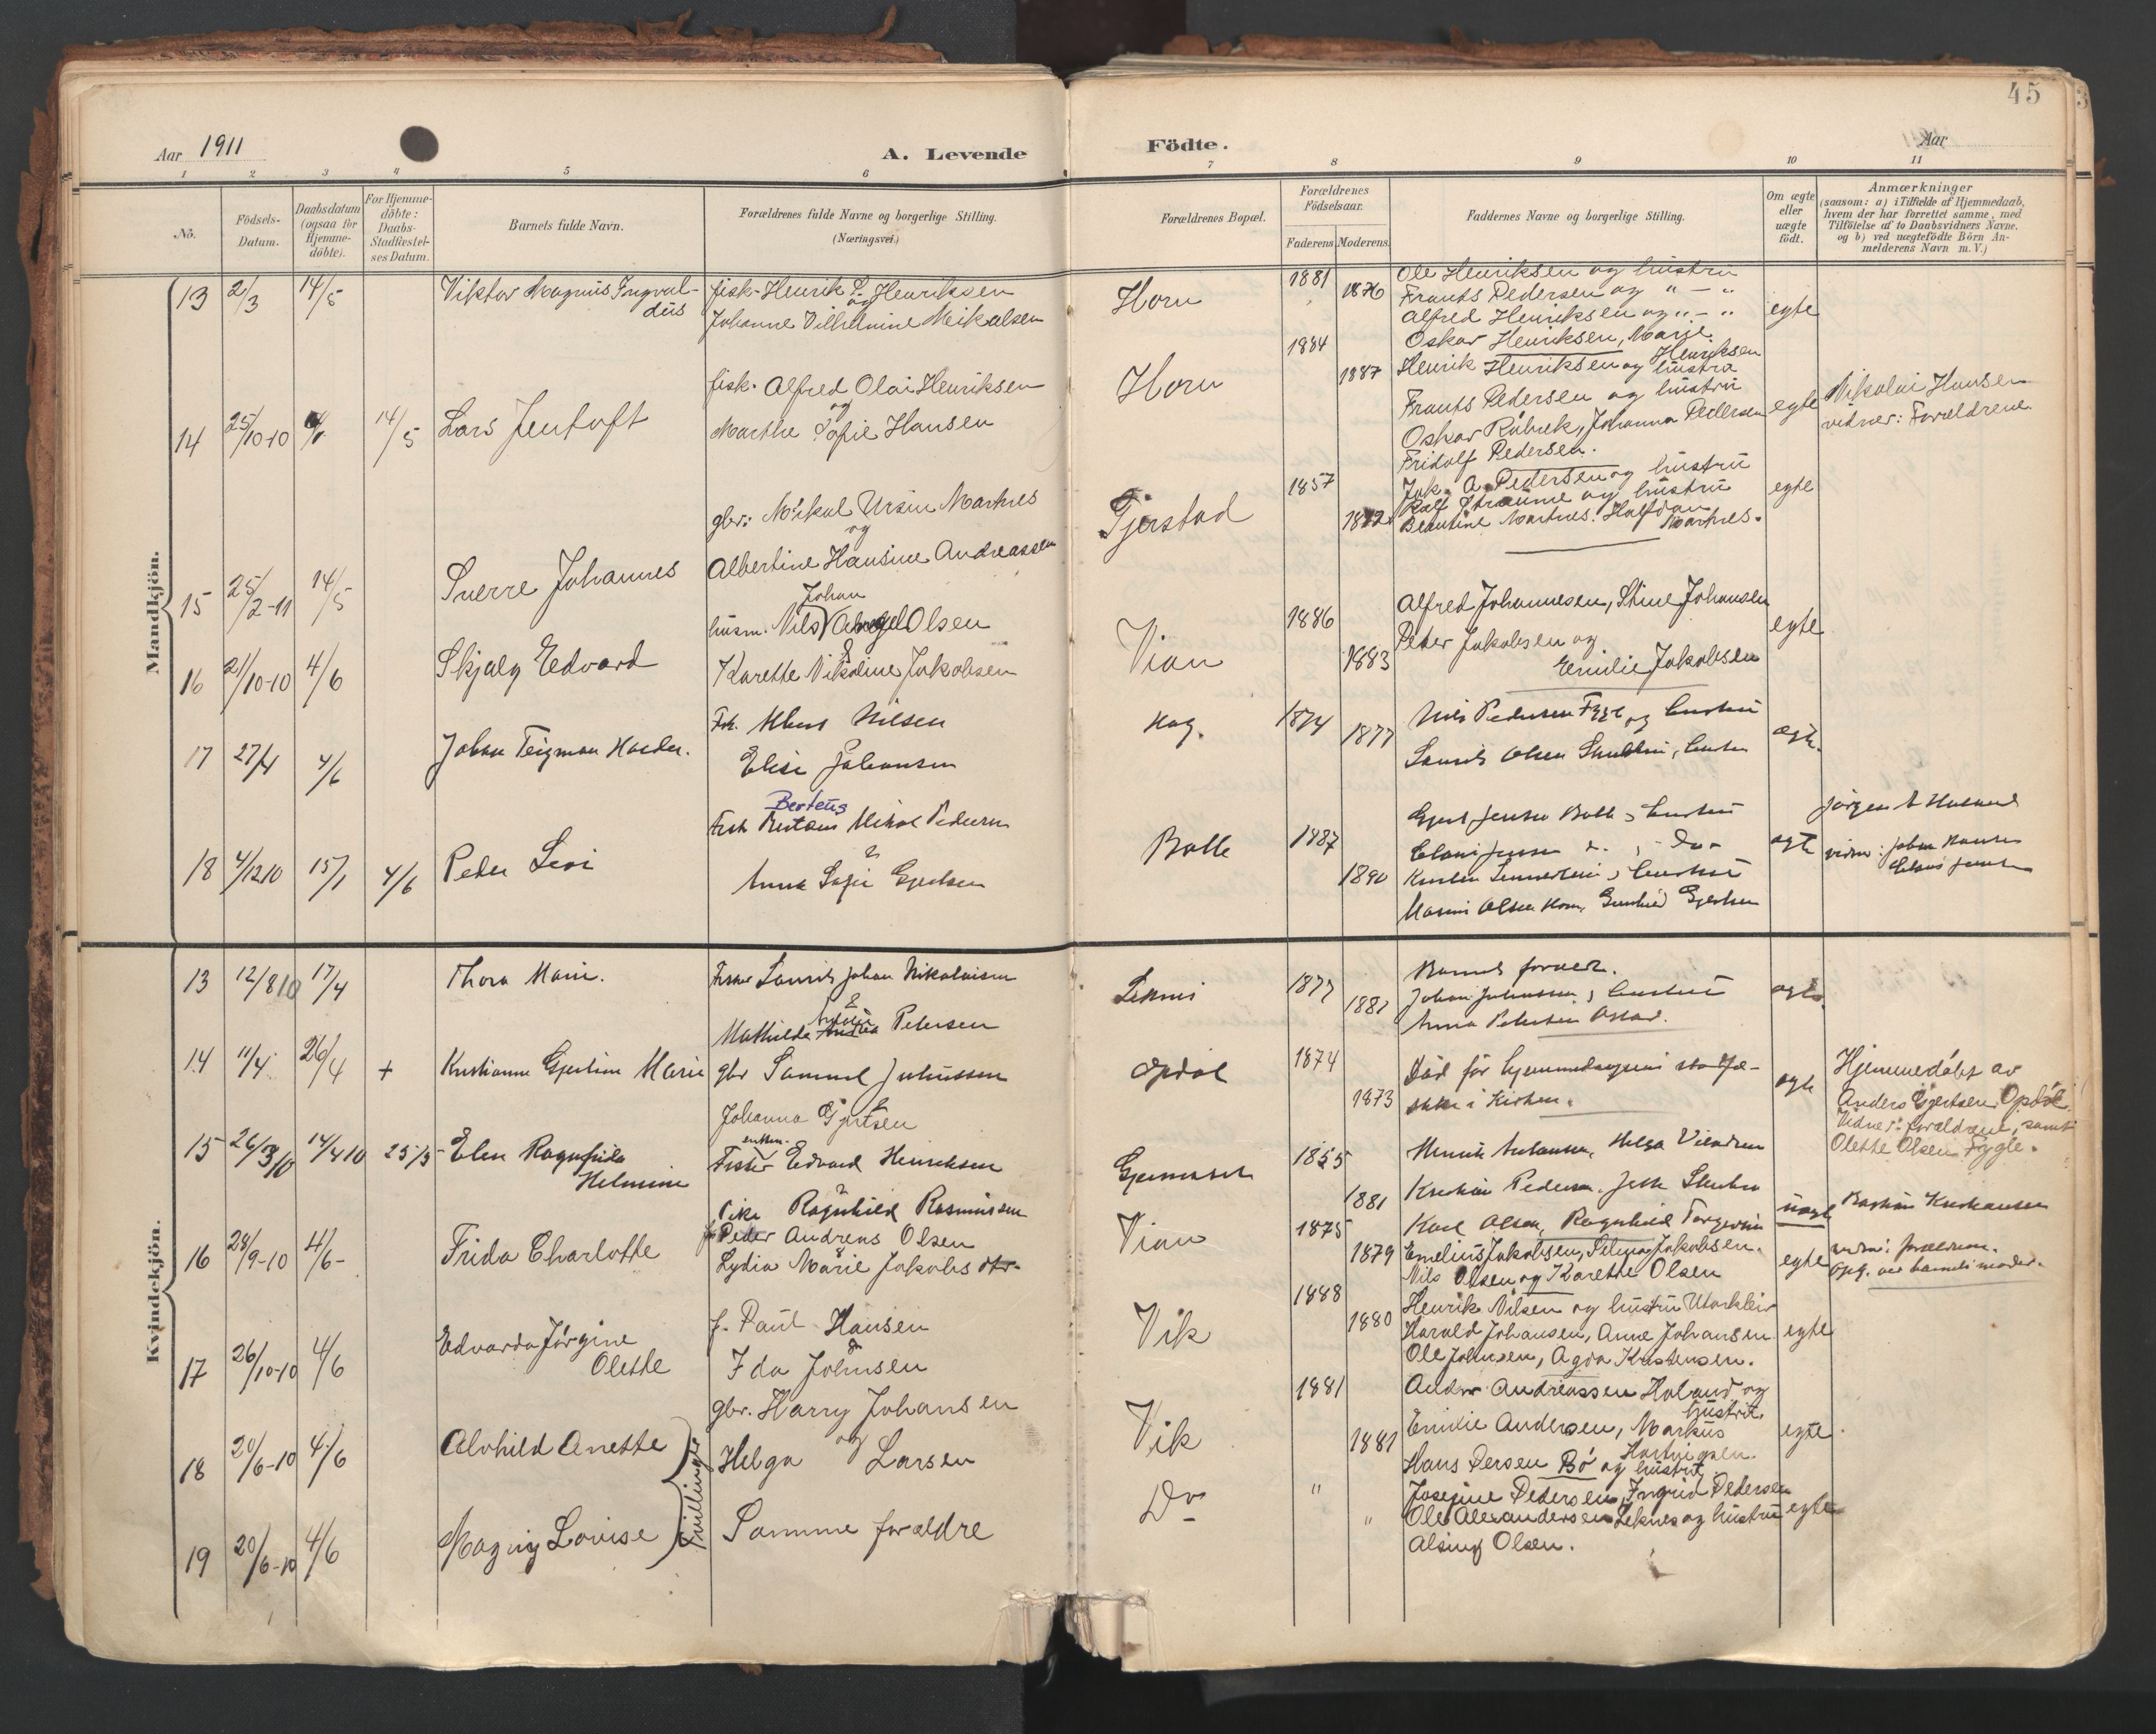 Aar 1911
A. Levende
Födte.
45
Aar
1 2 3 4 5 6 7 8 9 10 11
No.
Födsels-
Datum.
Daabsdatum
(ogsaa for
Hjemme-
döbte).
For Hjemme-
döbte:
Daabs-
Stadfæstel-
ses Datum.
Barnets fulde Navn.
Forældrenes fulde Navne og borgerlige Stilling.
(Næringsvei.)
Forældrenes Bopæl.
Forældrenes
Födselsaar.
Faderens Moderens
Faddernes Navne og borgerlige Stilling.
Om ægte
eller
uægte
födt.
Anmærkninger
(saasom: a) i Tilfælde af Hjemmedaab,
hvem der har forrettet samme, med
Tilföielse af to Daabsvidners Navne.
og b) ved uægtefödte Börn An-
melderens Navn m. V.)
Mandkjön.
13 2/3 14/5
Viktor Magnus Ingval-
dus
fisk. Henrik P. Henriksen
og
Johanne Vilhelmine Mikalsen
Horn
1881
1876
Ole Henriksen og hustru
Frants Pedersen og " - "
Alfred Henriksen og " - "
Oskar Henriksen, Marie
Henriksen
egte
14 25/10-10 14/5
Lars Jentoft
fisk. Alfred Olai Henriksen
og
Marthe Sofie Hansen
Horn
1884
1887
Henrik Henriksen og hustru
Frants Pedersen og hustru
Oskar Rübek, Johanna Pedersen
Fridolf Pedersen.
egte
Nikolai Hansen
vidner: Forældrene
15 25/2-11 14/5
Sverre Johannes
gbr. Mikal Ursin Martnes
og
Albertine Hansine Andreassen
Fjerstad
1857
Jak. A. Pedersen og hustru
Ralf Straume og hustru
Beautine Martnes. Halfdan
Martnes.
egte
16 21/10-10 4/6
Skjalg Edvard
Johan
husm. Nils Olsen
&
Karette Nikoline Jakobsen
Vian
1886
1883
Alfred Johannesen, Stine Johansen
Peder Jakobsen og
Emilie Jakobsen
egte
17 27/4 4/6
Johan Teigman
Fisk. Nilsen
Elise Johansen
Hag.
1874
1877
Nils Pedersen Fygle og hustru
Laurits Olsen
ægte.
18 4/12 10 15/1 4/6
Peder Levi
Berteus
Fisk Mikal Pedersen
&
Anna Sofie Gjertsen
Bolle
1887
1890
Gjert Jensen Bolle & hustru
ægte
vidner: Johan Hansen
Kvindekjön.
13 12/8 10 17/4
Thora Marie.
Fisker Laurits Johan Nikolaisen
&
Mathilde Petersen
Leknes
1877
1881
Barnets forældre.
Johan Johansen & hustru
Anna Petersen
ægte
14 11/4 26/4 +
Kristianne Gjertine Marie
gbr Samuel Juliussen
&
Johanna Gjertsen
Opdöl
1874
1873
Död för hjemmedaapens stadfæ-
stelse i Kirken.
ægte
Hjemmedöbt av
Anders Gjertsen Opdöl
Vidner: forældrene, samt
Olette Olsen Fygle.
15 26/3 10 14/4 10 25/5
Elen Ragnfrida
Helmine
enkem.
Fisker Edvard Henriksen
&
Pike Ragnhild Rasmussen
1855
1881
Kristian Pedersen.
Karl Olsen, Ragnhild Torgersen
uægte
Bastian Kristiansen
vidner: forældrene.
Opg. ved barnets moder.
16 28/9-10 4/6
Frida Charlotte
f. Peder Andreas Olsen
&
Lydia Marie Jakobsdtr.
Vian
1875
1879
Emelius Jakobsen, Selma Jakobsen.
Nils Olsen og Karette Olsen
egte
17 26/10-10 4/6
Edvarda Jörgine
Olette
f. Paul Hansen
&
Ida Johnsen
Vik
1888
1880
Henrik Nilsen og hustru Utakleiv
Harald Johansen, Anne Johansen
Ole Johnsen, Agda Kristensen.
egte
18 20/6-10 4/6
Alvhild Anette
Tvillinger
gbr. Harry Johansen
og
Helga Larsen
Vik
1881
1881
Andr. Andreassen Holand og
hustru.
Emilie Andersen, Markus
Hartvigsen.
Hans Persen Bö og hustru
egte
19 20/6-10 4/6
Magny Lovise
Samme forældre
Do
" "
Josefine Pedersen, Ingrid Pedersen
Ole Alexandersen Leknes og hustru
Alsing Olsen.
egte